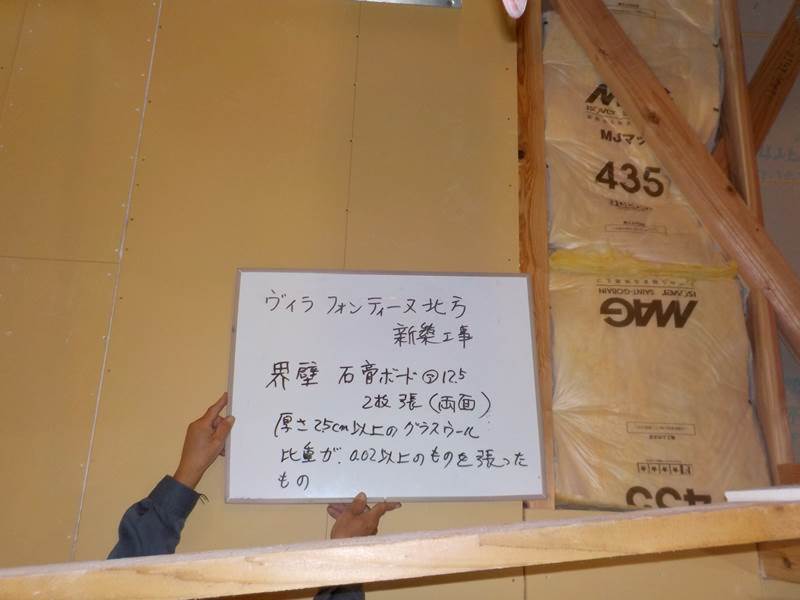 ヴィラ フォンティーヌ北方
新築工事
界壁 石膏ボード⑦12.5
2枚張(両面)
厚さ25cm以上のグラスウール
比重が、0.02以上のものを張った
もの
MJマッ
435
ISOVER SAINT-GOBAIN
MAG
435